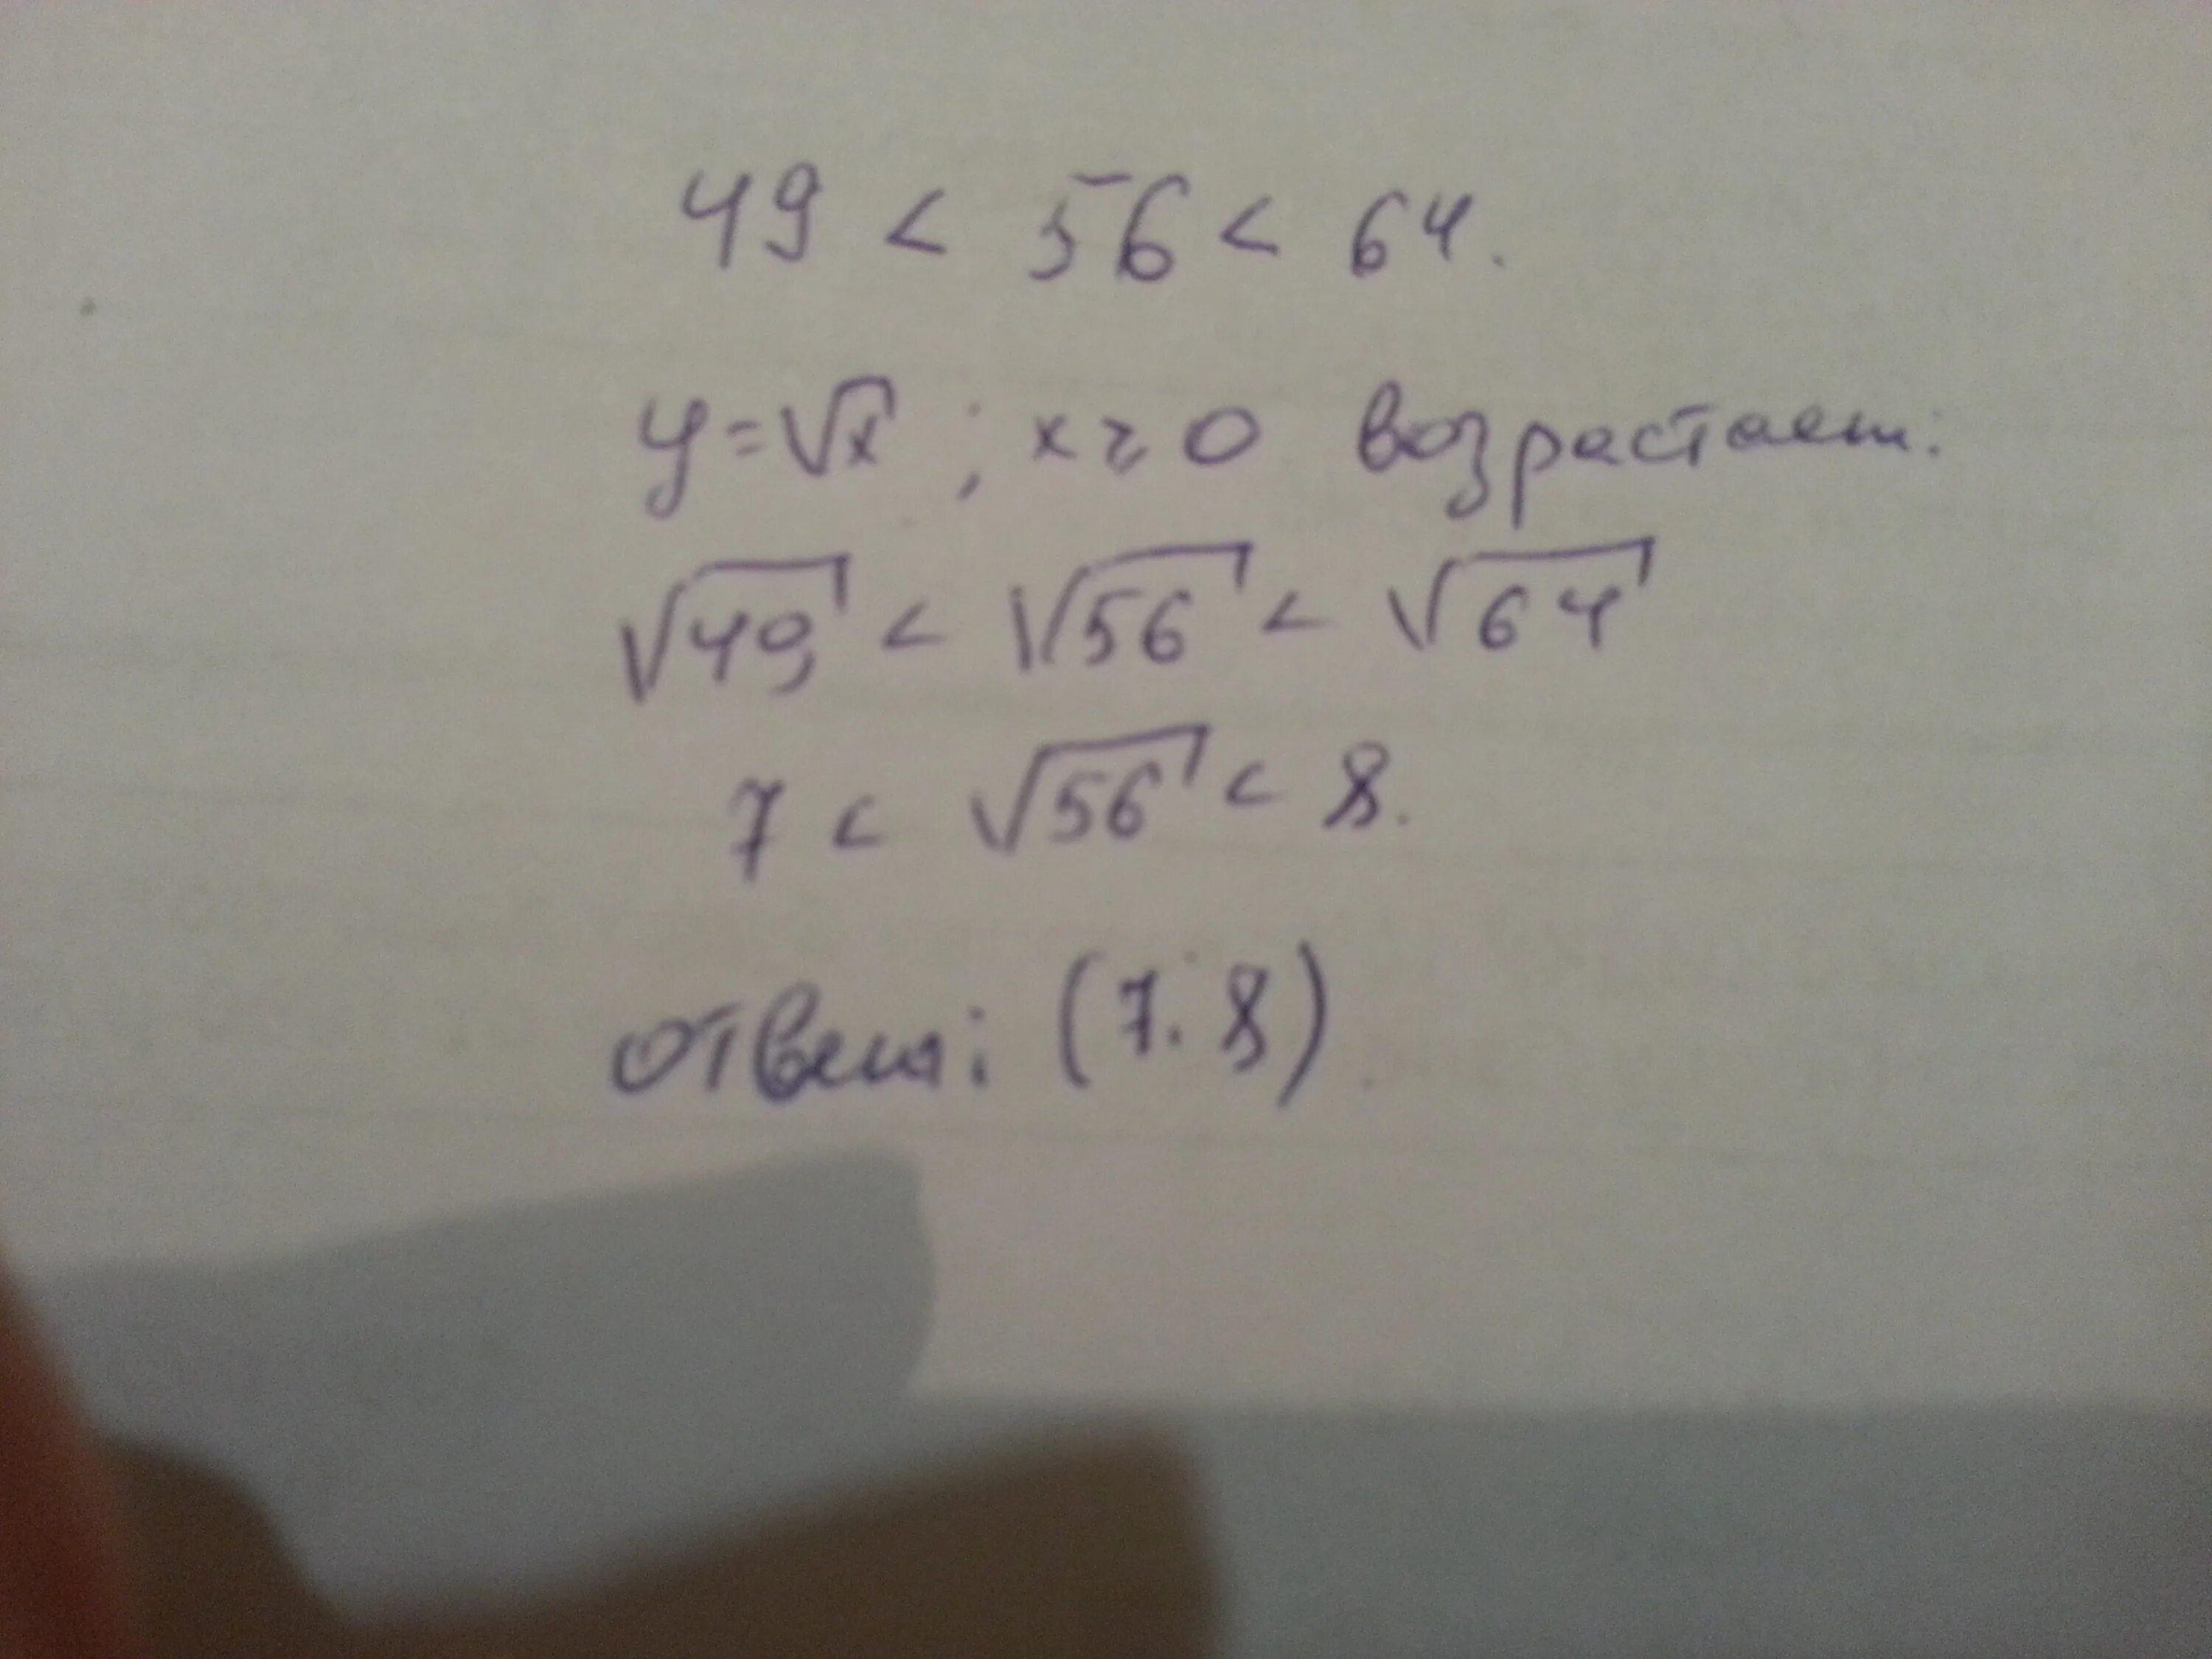 49 < 56 < 64.
y = √x ; x ≥ 0 возрастает:
√49 < √56 < √64
7 < √56 < 8.
ответ: (7. 8)